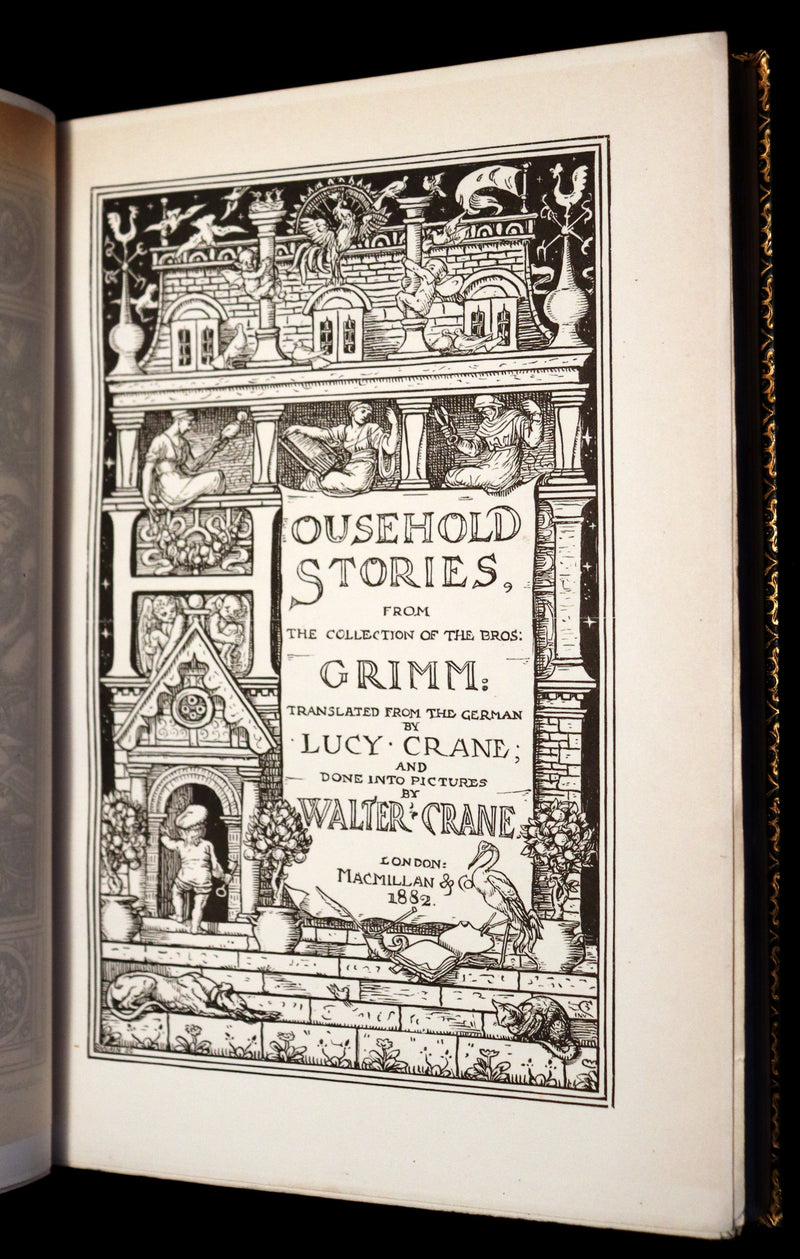 OUSEHOLD
STORIES,
FROM
THE COLLECTION OF THE BROS:
GRIMM:
TRANSLATED FROM THE GERMAN
BY
LUCY · CRANE;
AND
DONE INTO PICTURES
BY
WALTER CRANE
LONDON:
MACMILLAN & Co
1882.